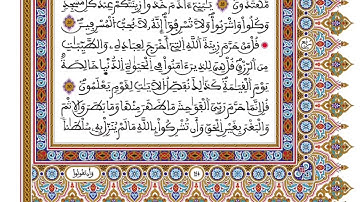 مُّهْتَدُونَ ۞ يَٰبَنِىٓ ءَادَمَ خُذُوا۟ زِينَتَكُمْ عِندَ كُلِّ مَسْجِدٍ
وَكُلُوا۟ وَٱشْرَبُوا۟ وَلَا تُسْرِفُوٓا۟ إِنَّهُۥ لَا يُحِبُّ ٱلْمُسْرِفِينَ
قُلْ مَنْ حَرَّمَ زِينَةَ ٱللَّهِ ٱلَّتِىٓ أَخْرَجَ لِعِبَادِهِۦ وَٱلطَّيِّبَٰتِ
مِنَ ٱلرِّزْقِ قُلْ هِىَ لِلَّذِينَ ءَامَنُوا۟ فِى ٱلْحَيَوٰةِ ٱلدُّنْيَا خَالِصَةً
يَوْمَ ٱلْقِيَٰمَةِ كَذَٰلِكَ نُفَصِّلُ ٱلْءَايَٰتِ لِقَوْمٍ يَعْلَمُونَ
قُلْ إِنَّمَا حَرَّمَ رَبِّىَ ٱلْفَوَٰحِشَ مَا ظَهَرَ مِنْهَا وَمَا بَطَنَ وَٱلْإِثْمَ
وَٱلْبَغْىَ بِغَيْرِ ٱلْحَقِّ وَأَن تُشْرِكُوا۟ بِٱللَّهِ مَا لَمْ يُنَزِّلْ بِهِۦ سُلْطَٰنًا
وَأَن تَقُولُوا۟